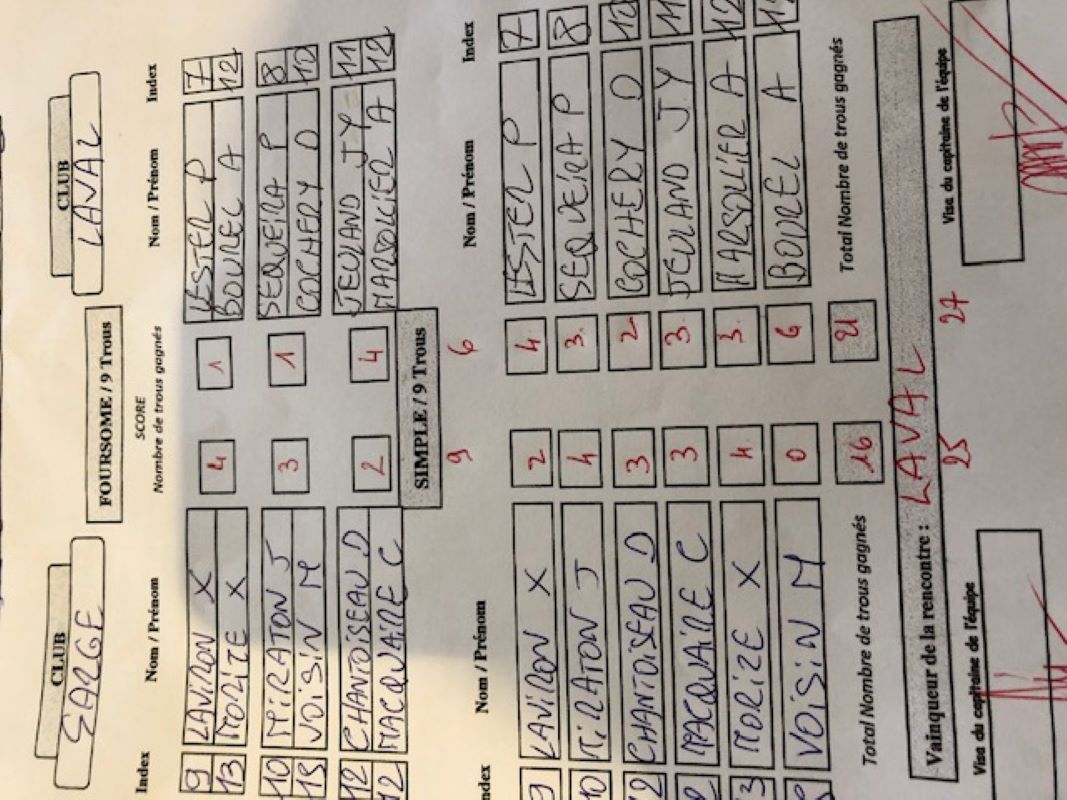 CLUB CLUB
SARGE LAVAL
FOURSOME / 9 Trous
Index Nom / Prénom SCORE Nom / Prénom Index
Nombre de trous gagnés
9 LAVIRON X 4 1 LESTER P 7
13 MORICE X BOUREL A 12
10 MIRATON J 3 1 SEQUEIRA P 8
15 VOISIN M COCHERY D 10
12 CHANTOISEAU D 2 4 JEULAND JY 11
12 MACQUAIRE C MARSOLIER A 12
SIMPLE / 9 Trous
9 6
Index Nom / Prénom Nom / Prénom Index
9 LAVIRON X 2 4 LESTER P 7
10 MIRATON J 4 3 SEQUEIRA P 8
12 CHANTOISEAU D 3 2 COCHERY D 10
MACQUAIRE C 3 3 JEULAND JY 11
3 MORIZE X 4 3 MARSOLIER A 12
VOISIN M 0 6 BOUREL A
Total Nombre de trous gagnés 16 21 Total Nombre de trous gagnés
Vainqueur de la rencontre : LAVAL
25 27
Visa du capitaine de l'équipe Visa du capitaine de l'équipe